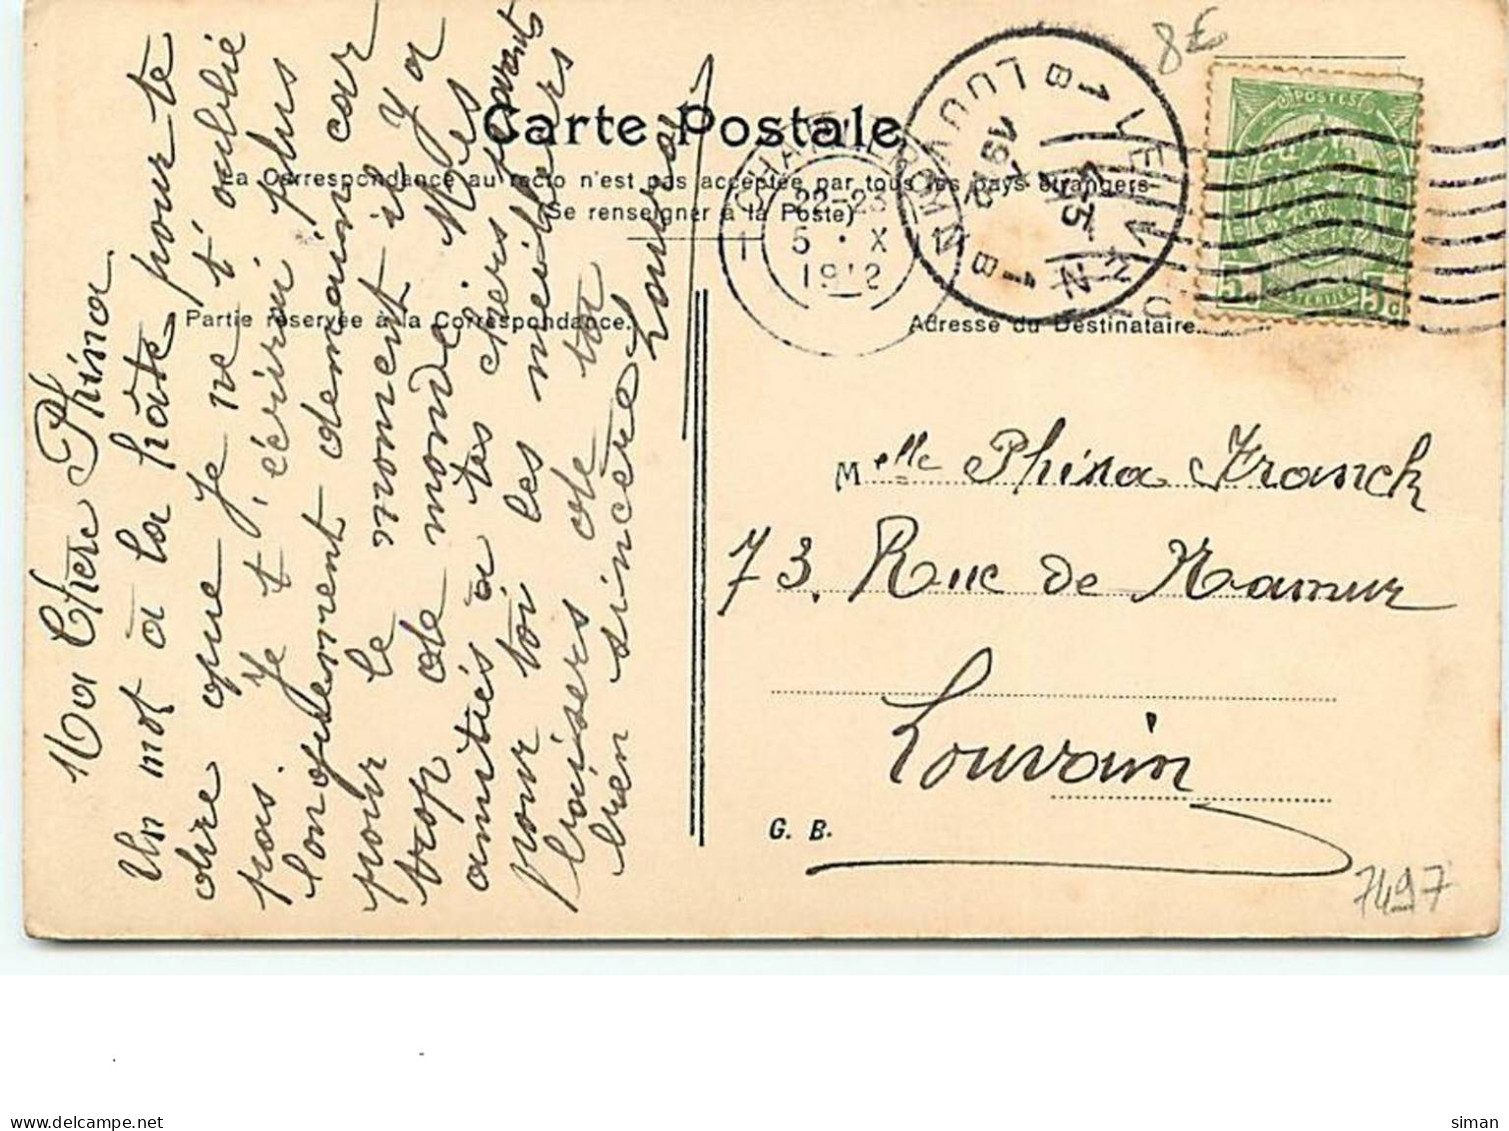 8£
Carte Postale
La Correspondance au recto n'est pas acceptée par tous les pays étrangers
(Se renseigner à la Poste)
POSTES
5
5c
CHARLEROI
22-23
5 · X
1912
1
1
LEUVEN
1B LOUVAIN 1B
1912
Partie réservée à la Correspondance.
Adresse du Destinataire.
Ma Chère Phina
Un mot à la hâte pour te
dire que je ne t'oublie
pas. Je t'écrirai plus
longuement demain car
pour le moment il y a
trop de monde. Mes
amitiés à tes chers parents
pour toi les meilleurs
baisers de ta
bien sincère
Louisa
Melle Phina Franck
73. Rue de Namur
Louvain
G. B.
7497
delcampe.net
siman